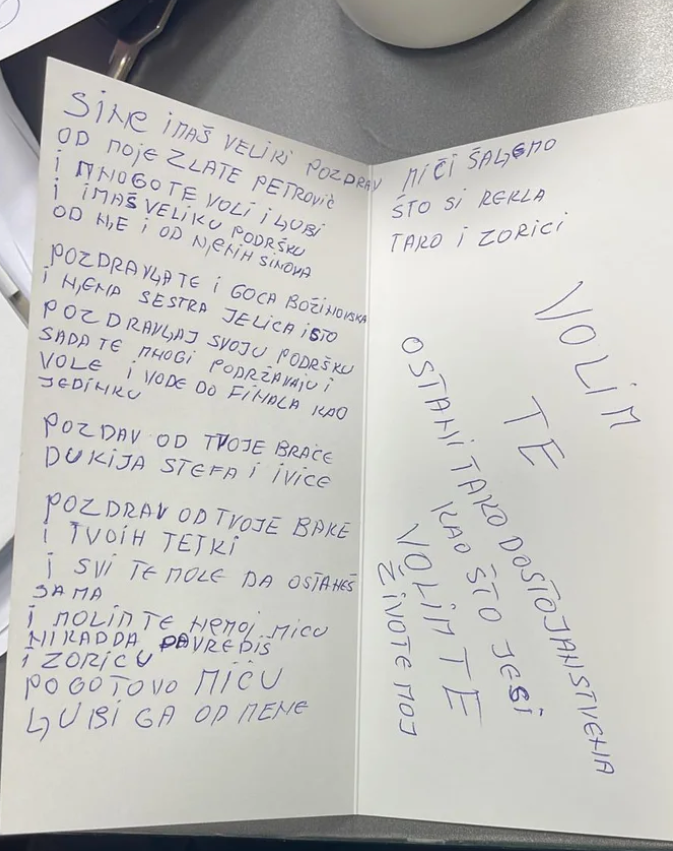 SINE IMAŠ VELIKI POZDRAV
OD MOJE ZLATE PETROVIĆ
I MNOGO TE VOLI I LJUBI
I IMAŠ VELIKU PODRŠKU
OD NJE I OD NJENIH SINOVA
POZDRAVLJA TE I GOCA BOŽINOVSKA
I NJENA SESTRA JELICA ISTO
POZDRAVLJAJ SVOJU PODRŠKU
SADA TE MNOGI PODRŽAVAJU I
VOLE I VODE DO FINALA KAO
JEDINKU
POZDAV OD TVOJE BRAĆE
DUKIJA STEFA I IVICE
POZDRAV OD TVOJE BAKE
I TVOIH TETKI
I SVI TE MOLE DA OSTANEŠ
SAMA
I MOLIM TE NEMOJ MICU
NIKAD DA PAVREDIŠ
I ZORICU
POGOTOVO MIĆU
LJUBI GA OD MENE
MIĆI ŠALJEMO
ŠTO SI REKLA
TAKO I ZORICI
VOLIM
TE
OSTANI TAKO DOSTOJANSTVENA
KAO ŠTO JESI
VOLIM TE
ŽIVOTE MOJ